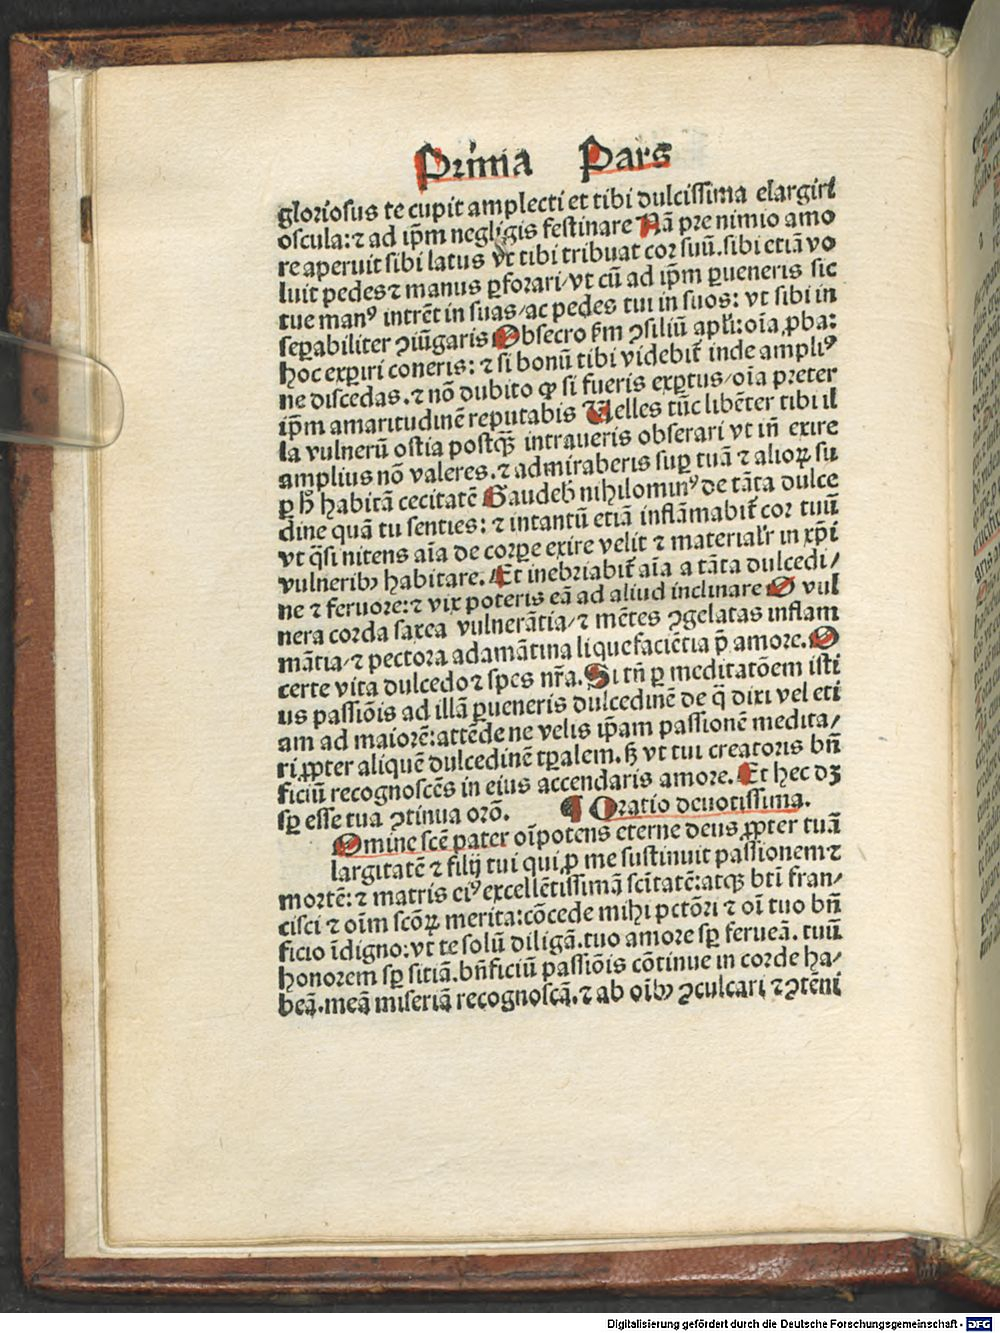 Prima Pars
gloriosus te cupit amplecti et tibi dulcissima elargiri
oscula: ⁊ ad ip̄m negligis festinare Nā pre nimio amo
re aperuit sibi latus vt tibi tribuat cor suū. sibi etiā vo
luit pedes ⁊ manus ꝑforari/ vt cū ad ip̄m ꝑueneris sic
tue manꝰ intrēt in suas/ ac pedes tui in suos: vt sibi in
seꝑabiliter ꝯiūgaris Obsecro ẜm ꝯsiliū apl̄i: oīa ꝓba:
hoc exꝑiri coneris: ⁊ si bonū tibi videbit̄ inde ampliꝰ
ne discedas. ⁊ nō dubito ꝙ si fueris exꝑtus/ oīa preter
ip̄m amaritudinē reputabis Velles tūc libēter tibi il
la vulnerū ostia postꝙ̄ intraueris obserari vt in̄ exire
amplius nō valeres. ⁊ admiraberis suꝑ tuā ⁊ alioꝝ su
ꝑ h̄ habitā cecitatē Gaudeb̄ nihilominꝰ de tāta dulce
dine quā tu senties: ⁊ intantū etiā inflāmabit̄ cor tuū
vt q̄si nitens aīa de corꝑe exire velit ⁊ materialr̄ in xp̄i
vulneribꝫ habitare. Et inebriabit̄ aīa a tāta dulcedi/
ne ⁊ feruore: ⁊ vix poteris eā ad aliud inclinare O vul
nera corda saxea vulnerātia/ ⁊ mētes ꝯgelatas inflam
mātia/ ⁊ pectora adamātina liquefaciētia p̄ amore. O
certe vita dulcedo ⁊ spes nr̄a. Si tn̄ ꝑ meditatōem isti
us passiōis ad illā ꝑueneris dulcedinē de q̄ dixi vel eti
am ad maiorē: attēde ne velis ip̄am passionē medita/
ri ꝓpter aliquē dulcedinē tꝑalem. ꞩ vt tui creatoris bn̄
ficiū recognoscēs in eius accendaris amore. Et hec dꝫ
sꝑ esse tua ꝯtinua orō. ¶ Oratio deuotissima.
Omine scē pater oīpotens eterne deus ꝓpter tuā
largitatē ⁊ filij tui qui ꝑ me sustinuit passionem ⁊
mortē: ⁊ matris eiꝰ excellētissimā scītatē: atqꝫ bt̄i fran/
cisci ⁊ oīm scōꝝ merita: cōcede mihi pctōri ⁊ oī tuo bn̄
ficio īdigno: vt te solū diligā. tuo amore sꝑ ferueā. tuū
honorem sꝑ sitiā. bn̄ficiū passiōis cōtinue in corde ha/
beā. meā miseriā recognoscā. ⁊ ab oībꝫ ꝯculcari ⁊ ꝯtēni
Digitalisierung gefördert durch die Deutsche Forschungsgemeinschaft - DFG